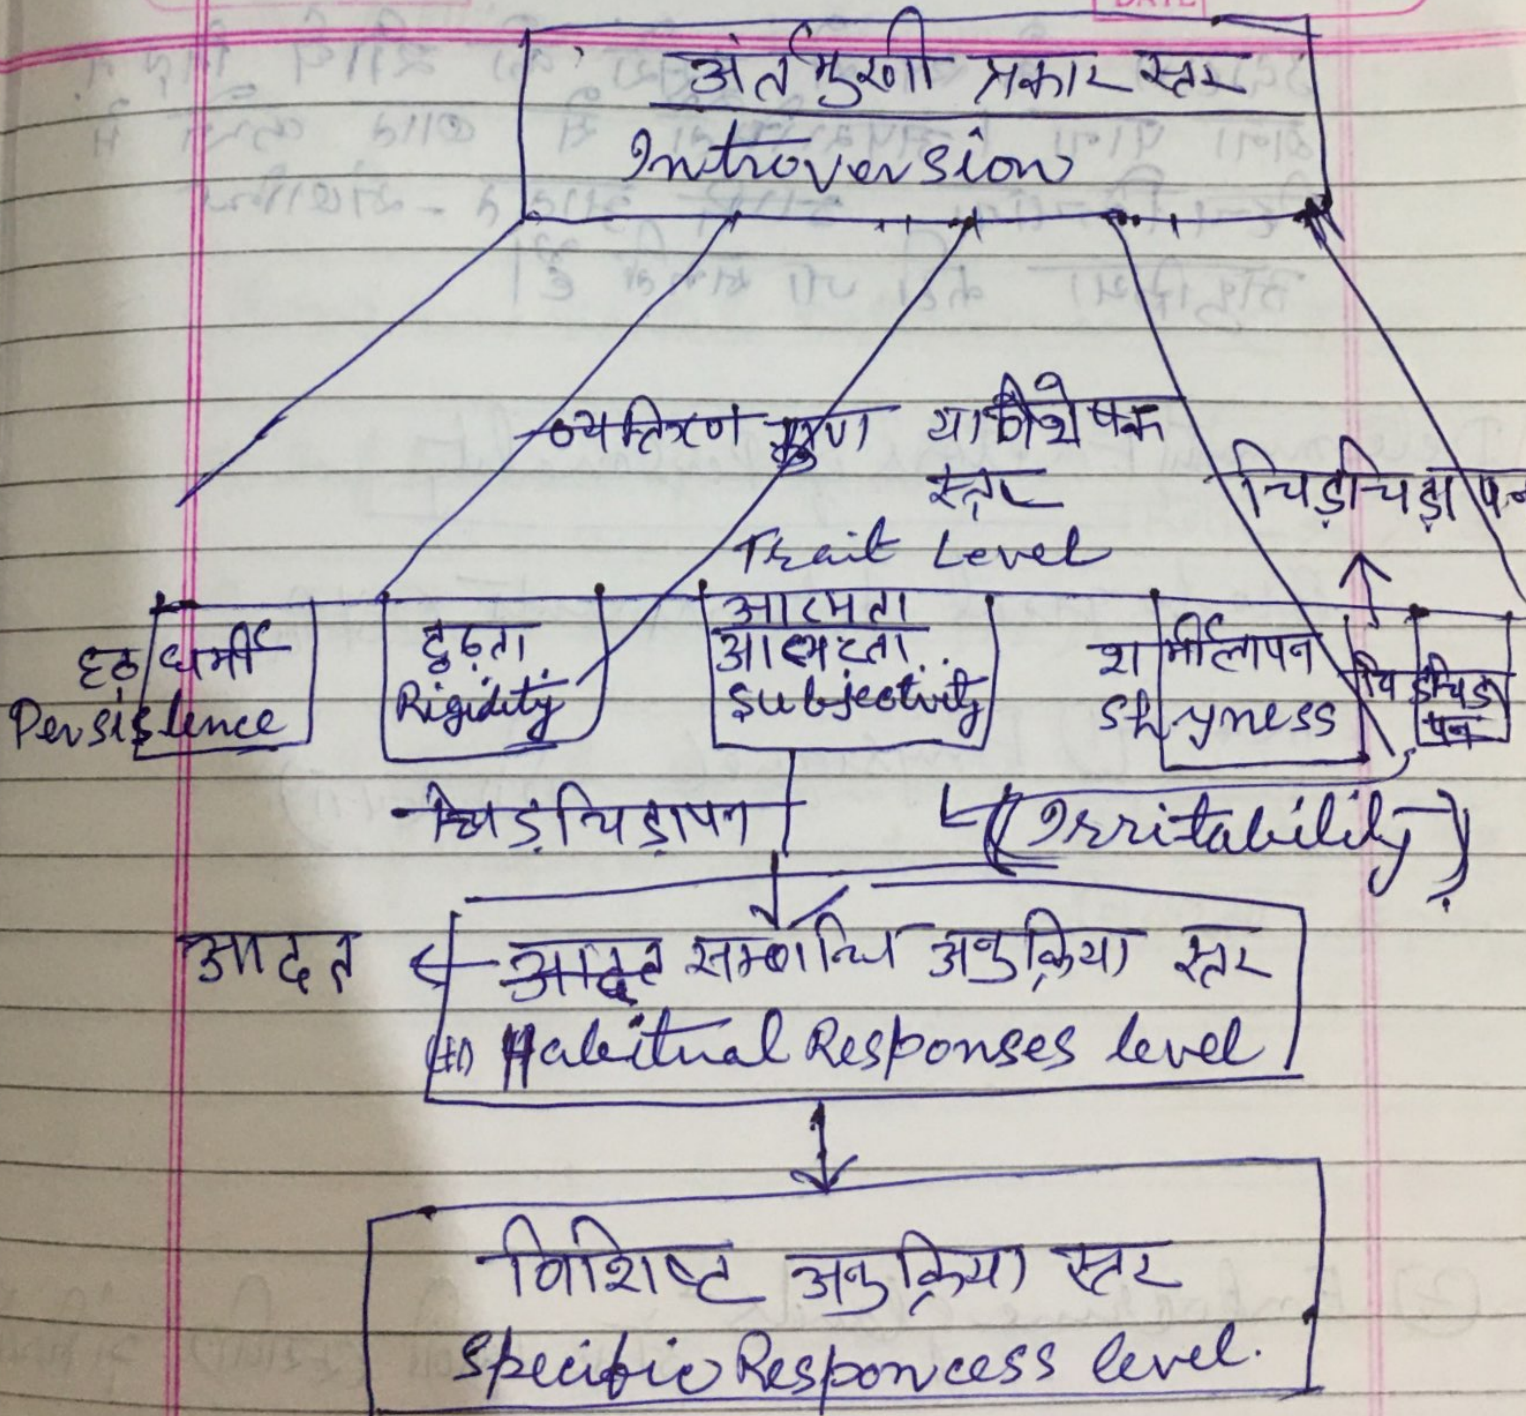 अंर्तमुखी प्रकार स्तर
Introversion
व्यक्तित्व गुण या विशेषक
स्तर
Trait Level
चिड़चिड़ापन
हठधर्मी
Persistence
दृढ़ता
Rigidity
आत्मता
Subjectivity
शर्मीलापन
Shyness
चिड़चिड़ा
पन
चिड़चिड़ापन
(Irritability)
आदत
आदत सम्बन्धि अनुक्रिया स्तर
Habitual Responses level
विशिष्ट अनुक्रिया स्तर
Specific Responcess level.